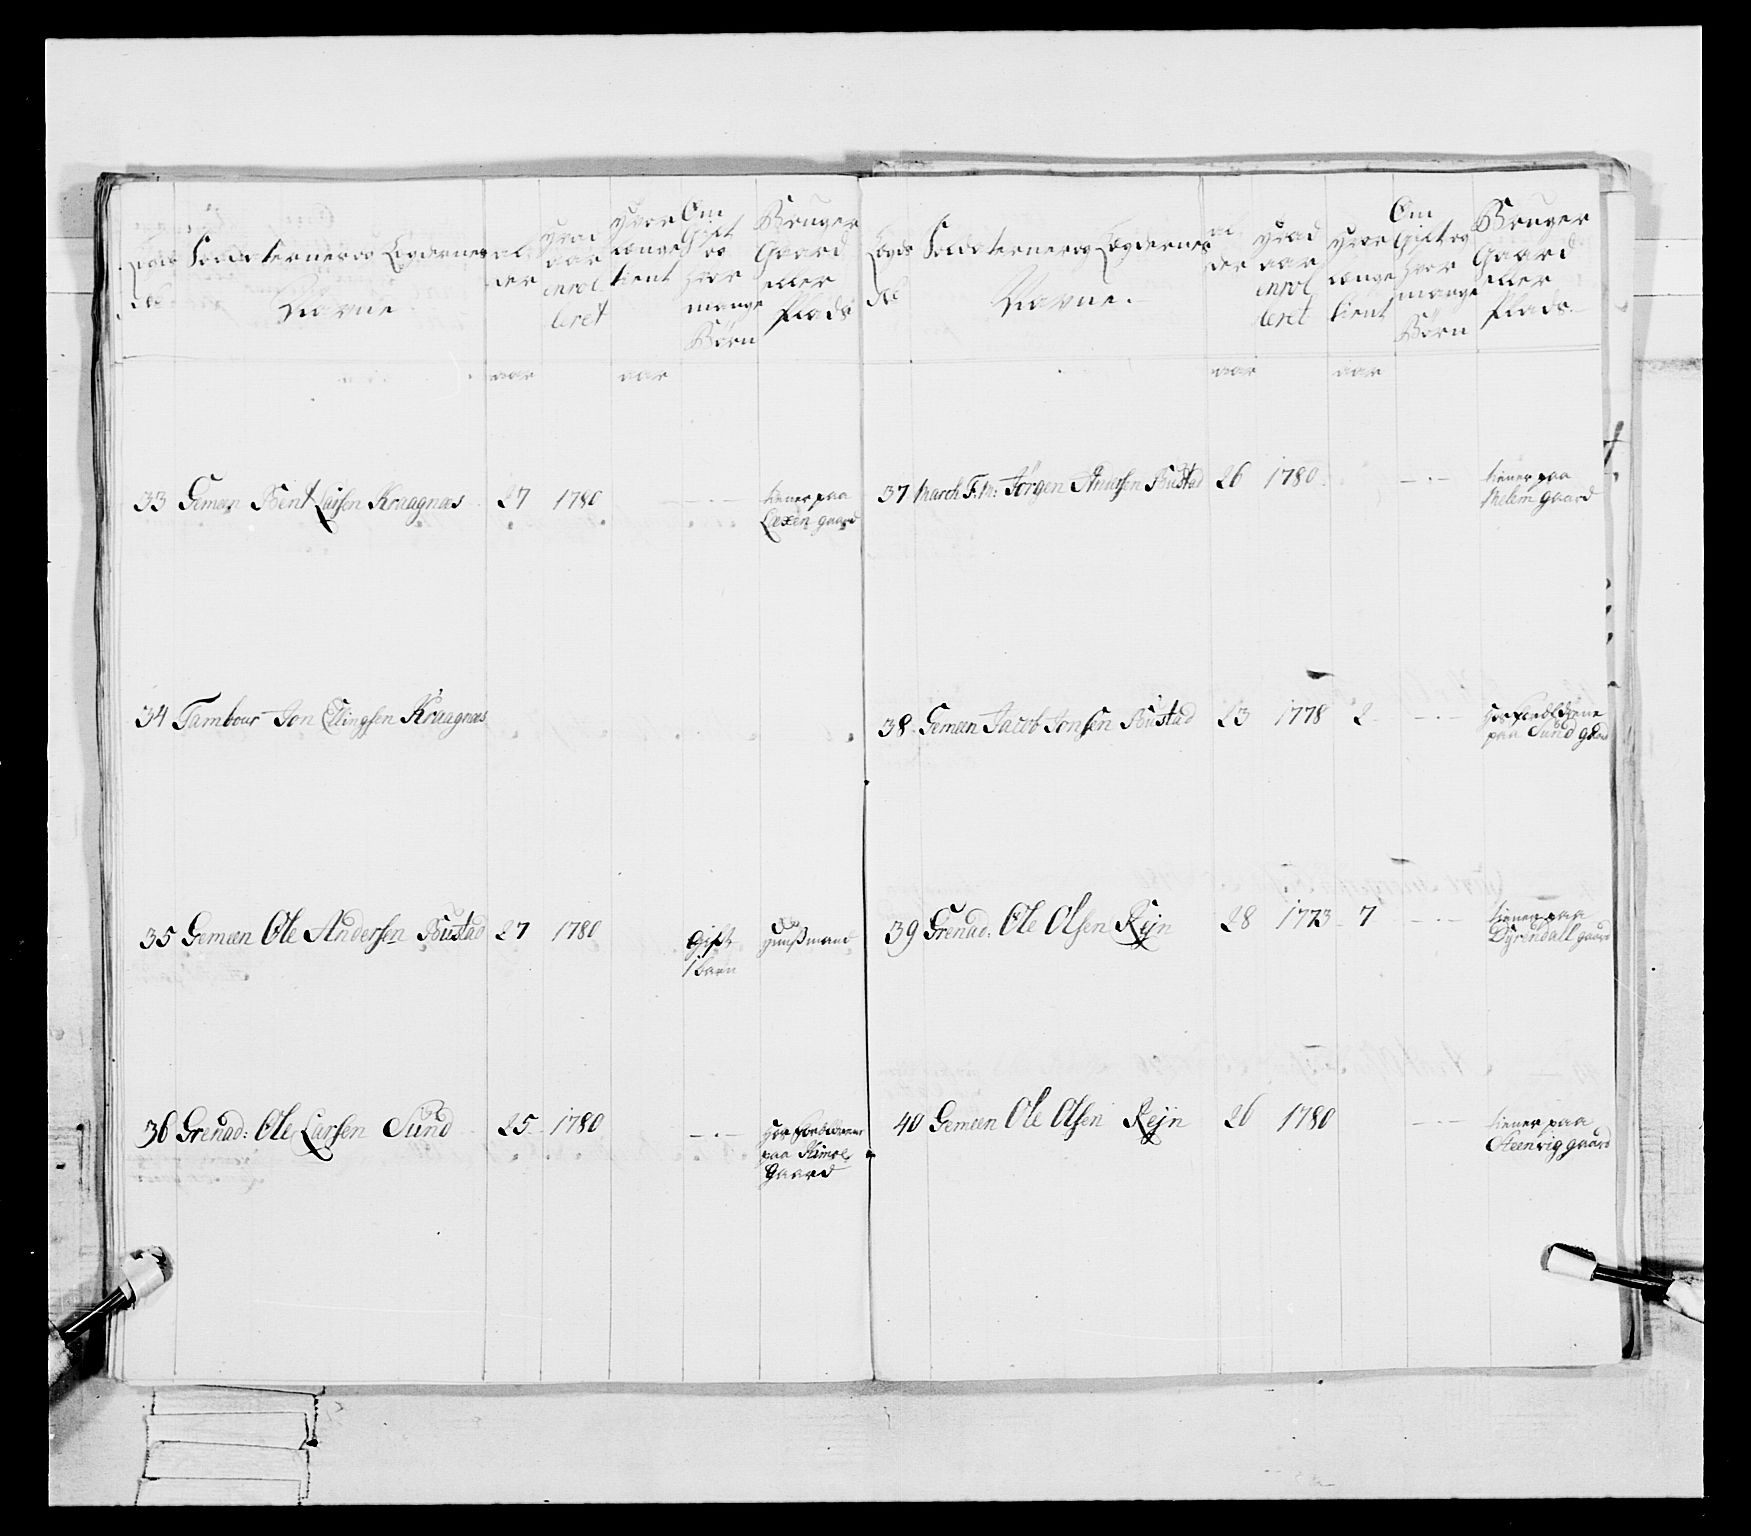 Legds No
Soldaterne og Legdernes Navne
al der
hvad aar enrol leret
hvor længe tient
Om Gift og hvor mange Børn
Bruger Gaard eller Plads
aar
aar
33 Gemeen Bent Larsen Kraagnæs 27 1780 — . — tiener paa
Lexen gaard
34 Tambour Jon Ellingsen Kraagnæs
35 Gemeen Ole Andersen Bustad 27 1780 Gift huusmand
1 barn
36 Grenad: Ole Larsen Sund 25 1780 — . — hos Forældrene
paa
Gaard
Legds No
Soldaterne og Legdernes Navne.
al der
hvad aar enrol leret
hvor længe tient
Om Gift og hvor mange Børn
Bruger Gaard eller Plads.
aar
aar
37 March F. M: Jörgen Andersen Bustad 26 1780. — . — tiener paa
Melem gaard
38. Gemeen Jacob Jonsen Bustad 23 1778 2 — . — hos Forældrene
paa Sund gaard
39 Grenad. Ole Olsen Rejn 28 1773 7 — . — tiener paa
Dyrendall gaard
40 Gemeen Ole Olsen Rejn 26 1780 — . — tiener paa
Steenvig gaard